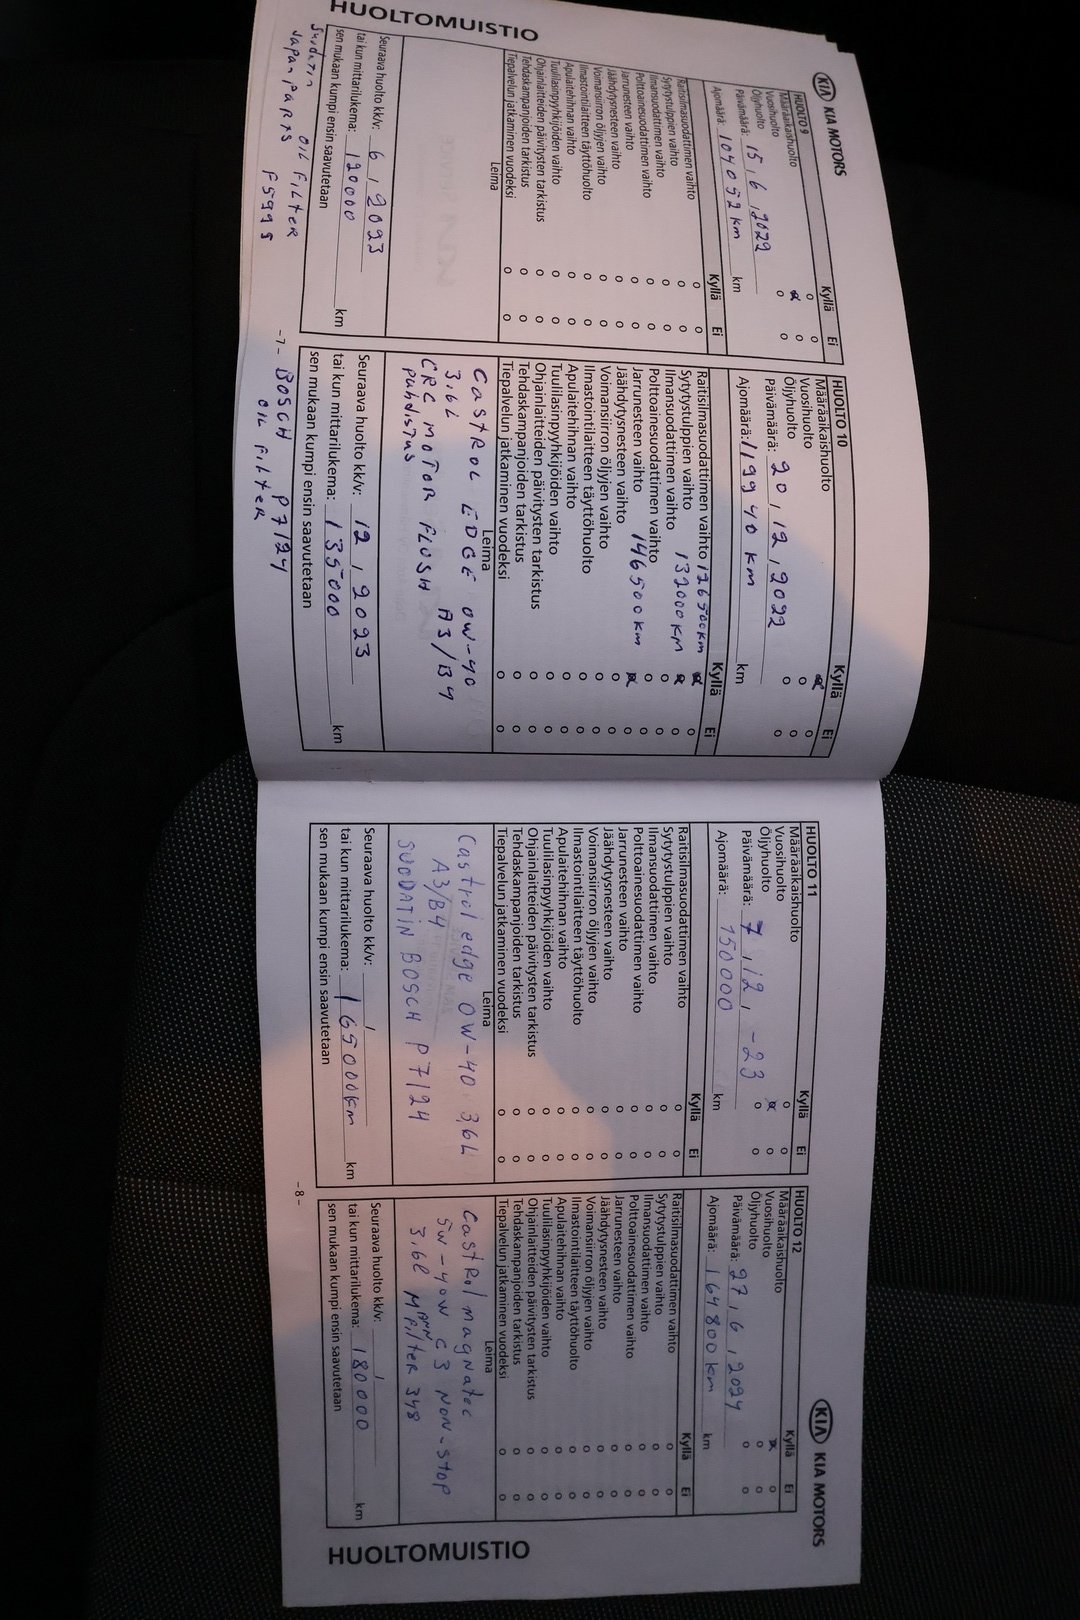 HUOLTOMUISTIO
KIA KIA MOTORS
HUOLTO 9 Kyllä Ei
Määräaikaishuolto o o
Vuosihuolto o
Öljyhuolto o o
Päivämäärä: 15,6,2022
Ajomäärä: 104052km km
Kyllä Ei
Raitisilmasuodattimen vaihto o o
Sytytystulppien vaihto o o
Ilmansuodattimen vaihto o o
Polttoainesuodattimen vaihto o o
Jarrunesteen vaihto o o
Jäähdytysnesteen vaihto o o
Voimansiirron öljyjen vaihto o o
Ilmastointilaitteen täyttöhuolto o o
Apulaitehihnan vaihto o o
Tuulilasinpyyhkijöiden vaihto o o
Ohjainlaitteiden päivitysten tarkistus o o
Tehdaskampanjoiden tarkistus o o
Tiepalvelun jatkaminen vuodeksi o o
Leima
Seuraava huolto kk/v: 6,2023
tai kun mittarilukema: 120000 km
sen mukaan kumpi ensin saavutetaan
Suodatin OIL FILTER
Japanparts F5995
-7-
HUOLTO 10 Kyllä Ei
Määräaikaishuolto o
Vuosihuolto o o
Öljyhuolto o o
Päivämäärä: 20,12,2022
Ajomäärä: 119940 km km
Kyllä Ei
Raitisilmasuodattimen vaihto 126500km o
Sytytystulppien vaihto 132000km o
Ilmansuodattimen vaihto o o
Polttoainesuodattimen vaihto o o
Jarrunesteen vaihto 146500km o
Jäähdytysnesteen vaihto o o
Voimansiirron öljyjen vaihto o o
Ilmastointilaitteen täyttöhuolto o o
Apulaitehihnan vaihto o o
Tuulilasinpyyhkijöiden vaihto o o
Ohjainlaitteiden päivitysten tarkistus o o
Tehdaskampanjoiden tarkistus o o
Tiepalvelun jatkaminen vuodeksi o o
Leima
CASTROL EDGE 0W-40
3.6L A3/B4
CRC MOTOR FLUSH
puhdistus
Seuraava huolto kk/v: 12,2023
tai kun mittarilukema: 135000 km
sen mukaan kumpi ensin saavutetaan
BOSCH P7124
OIL FILTER
HUOLTO 11 Kyllä Ei
Määräaikaishuolto o o
Vuosihuolto o
Öljyhuolto o o
Päivämäärä: 7,12,-23
Ajomäärä: 150000 km
Kyllä Ei
Raitisilmasuodattimen vaihto o o
Sytytystulppien vaihto o o
Ilmansuodattimen vaihto o o
Polttoainesuodattimen vaihto o o
Jarrunesteen vaihto o o
Jäähdytysnesteen vaihto o o
Voimansiirron öljyjen vaihto o o
Ilmastointilaitteen täyttöhuolto o o
Apulaitehihnan vaihto o o
Tuulilasinpyyhkijöiden vaihto o o
Ohjainlaitteiden päivitysten tarkistus o o
Tehdaskampanjoiden tarkistus o o
Tiepalvelun jatkaminen vuodeksi o o
Leima
Castrol edge 0W-40 3,6L
A3/B4
SUODATIN BOSCH P7124
Seuraava huolto kk/v: /
tai kun mittarilukema: 165000km km
sen mukaan kumpi ensin saavutetaan
-8-
KIA KIA MOTORS
HUOLTO 12 Kyllä Ei
Määräaikaishuolto o
Vuosihuolto o o
Öljyhuolto o o
Päivämäärä: 27,6,2024
Ajomäärä: 164800km km
Kyllä Ei
Raitisilmasuodattimen vaihto o o
Sytytystulppien vaihto o o
Ilmansuodattimen vaihto o o
Polttoainesuodattimen vaihto o o
Jarrunesteen vaihto o o
Jäähdytysnesteen vaihto o o
Voimansiirron öljyjen vaihto o o
Ilmastointilaitteen täyttöhuolto o o
Apulaitehihnan vaihto o o
Tuulilasinpyyhkijöiden vaihto o o
Ohjainlaitteiden päivitysten tarkistus o o
Tehdaskampanjoiden tarkistus o o
Tiepalvelun jatkaminen vuodeksi o o
Leima
Castrol magnatec
5W-40W C3 NON-STOP
3.6L MANN Filter 348
Seuraava huolto kk/v: /
tai kun mittarilukema: 180000 km
sen mukaan kumpi ensin saavutetaan
HUOLTOMUISTIO